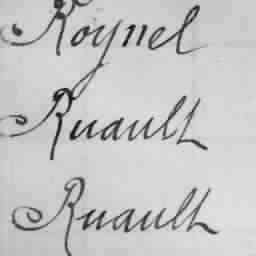 Roynel
Ruault
Ruault